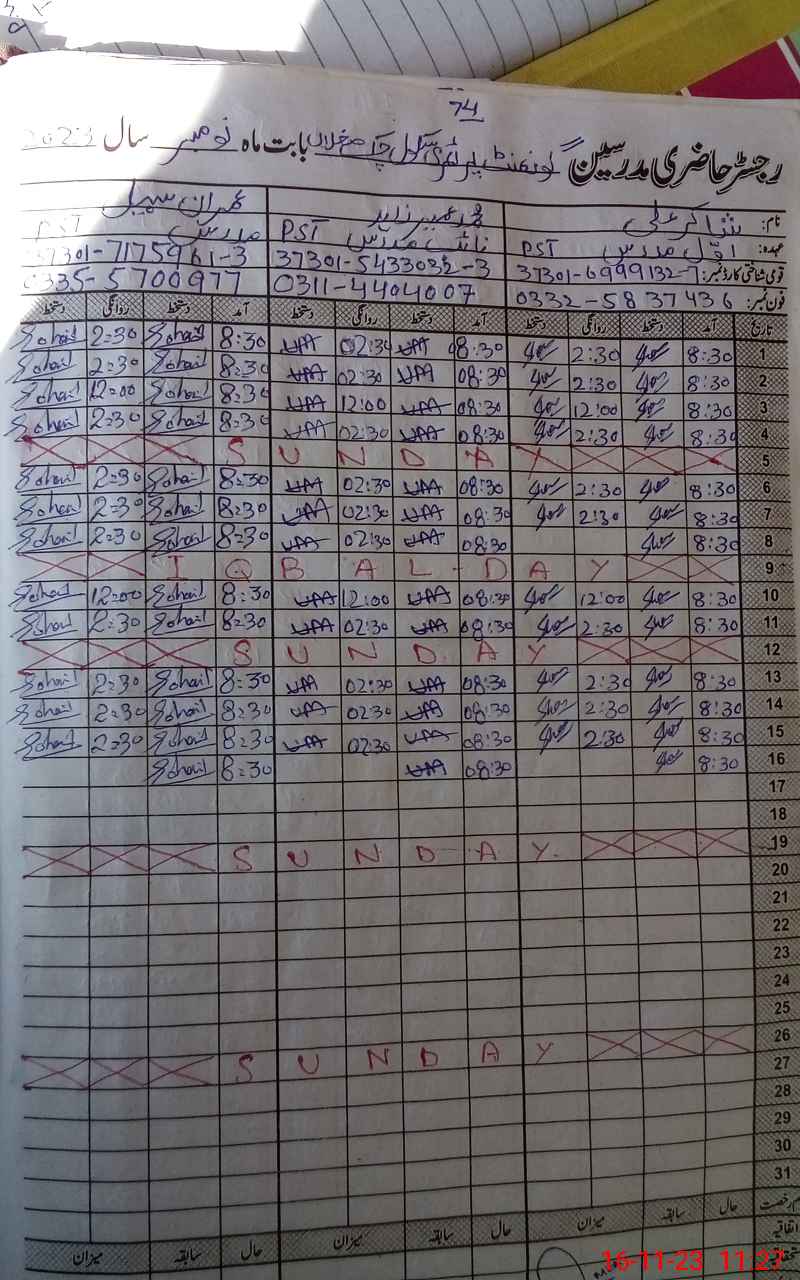 74
رجسٹر حاضری مدرسین گورنمنٹ پرائمری سکول مغلاں بابت ماہ نومبر سال 2023
نام: شاکر علی محمد عمیر زاہد عمران سہیل
عہدہ: اوّل مدرس PST نائب مدرس PST مدرس PST
قومی شناختی کارڈ نمبر: 37301-6999132-7 37301-5433032-3 37301-7175961-3
فون نمبر: 0332-5837436 0311-4404007 0335-5700977
تاریخ آمد دستخط روانگی دستخط آمد دستخط روانگی دستخط آمد دستخط روانگی دستخط
1 8:30 2:30 08:30 02:30 8:30 Sohail 2:30 Sohail
2 8:30 2:30 08:30 02:30 8:30 Sohail 2:30 Sohail
3 8:30 12:00 08:30 12:00 8:30 Sohail 12:00 Sohail
4 8:30 2:30 08:30 02:30 8:30 Sohail 2:30 Sohail
5 SUNDAY
6 8:30 2:30 08:30 02:30 8:30 Sohail 2:30 Sohail
7 8:30 2:30 08:30 02:30 8:30 Sohail 2:30 Sohail
8 8:30 08:30 02:30 8:30 Sohail 2:30 Sohail
9 IQBAL-DAY
10 8:30 12:00 08:30 12:00 8:30 Sohail 12:00 Sohail
11 8:30 2:30 08:30 02:30 8:30 Sohail 2:30 Sohail
12 SUNDAY
13 8:30 2:30 08:30 02:30 8:30 Sohail 2:30 Sohail
14 8:30 2:30 08:30 02:30 8:30 Sohail 2:30 Sohail
15 8:30 2:30 08:30 02:30 8:30 Sohail 2:30 Sohail
16 8:30 08:30 8:30 Sohail
17
18
19 SUNDAY
20
21
22
23
24
25
26 SUNDAY
27
28
29
30
31
رخصت حال سابقہ میزان حال سابقہ میزان حال سابقہ میزان
اتفاقیہ
16-11-23 11:27